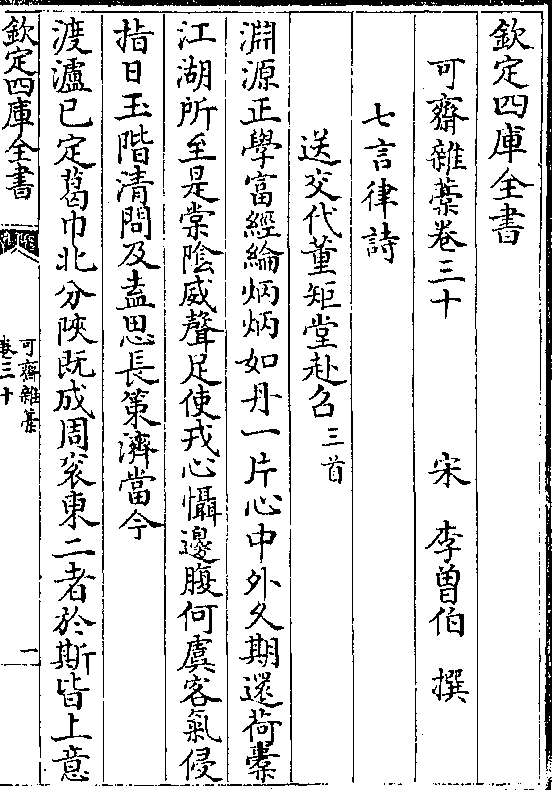 欽定四庫全書
可齋雜藁卷三十　宋　李曾伯　撰
七言律詩
送交代董矩堂赴召三首
淵源正學富經綸炳炳如丹一片心中外久期還荷橐
江湖所至是棠陰威聲足使戎心懾邊腹何虞客氣侵
指日玉階清問及盍思長策濟當今
渡瀘已定葛巾北分陜既成周衮東二者於斯皆上意
欽定四庫全書
可齋雜藁
卷三十
一